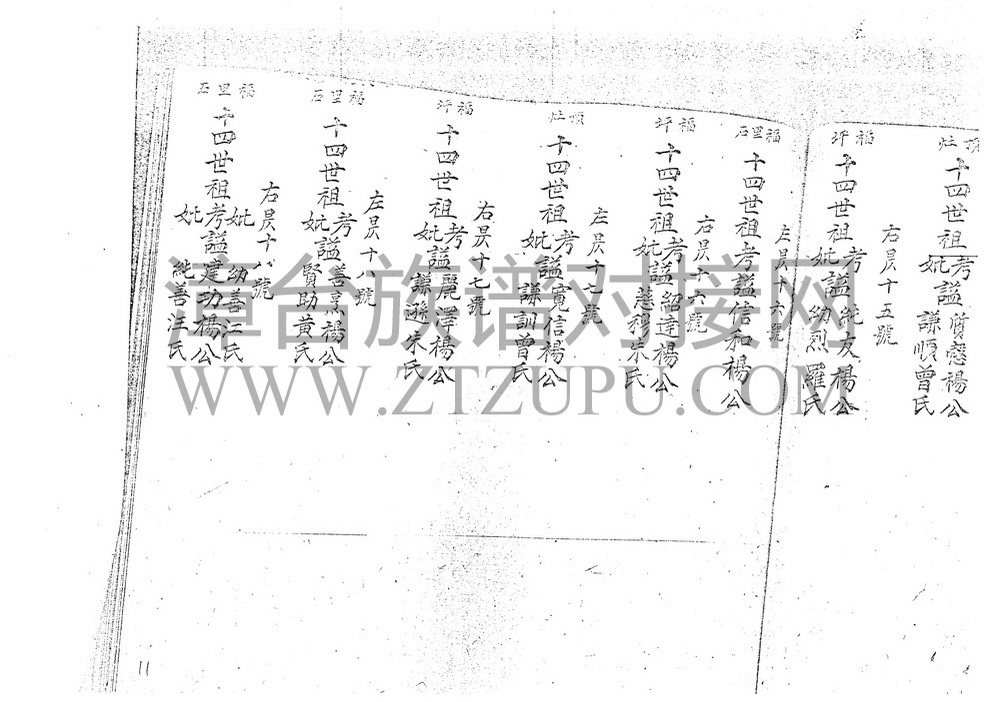 頂灶
十四世祖考諡質慤楊公
妣謙順曾氏
右昃十五號
福坪
十四世祖考諡純友楊公
妣幼烈羅氏
左昃十六號
福里石
十四世祖考諡信和楊公
右昃十六號
福坪
十四世祖考諡紹達楊公
妣慈穆朱氏
左昃十七號
頂灶
十四世祖考諡寬信楊公
妣謙訓曾氏
右昃十七號
福坪
十四世祖考諡麗澤楊公
妣謙遜朱氏
左昃十八號
福里石
十四世祖考諡善烹楊公
妣賢助黃氏
右昃十八號
福里石
妣幼善江氏
十四世祖考諡建功楊公
妣純善汪氏
11
漳台族谱对接网
WWW.ZTZUPU.COM